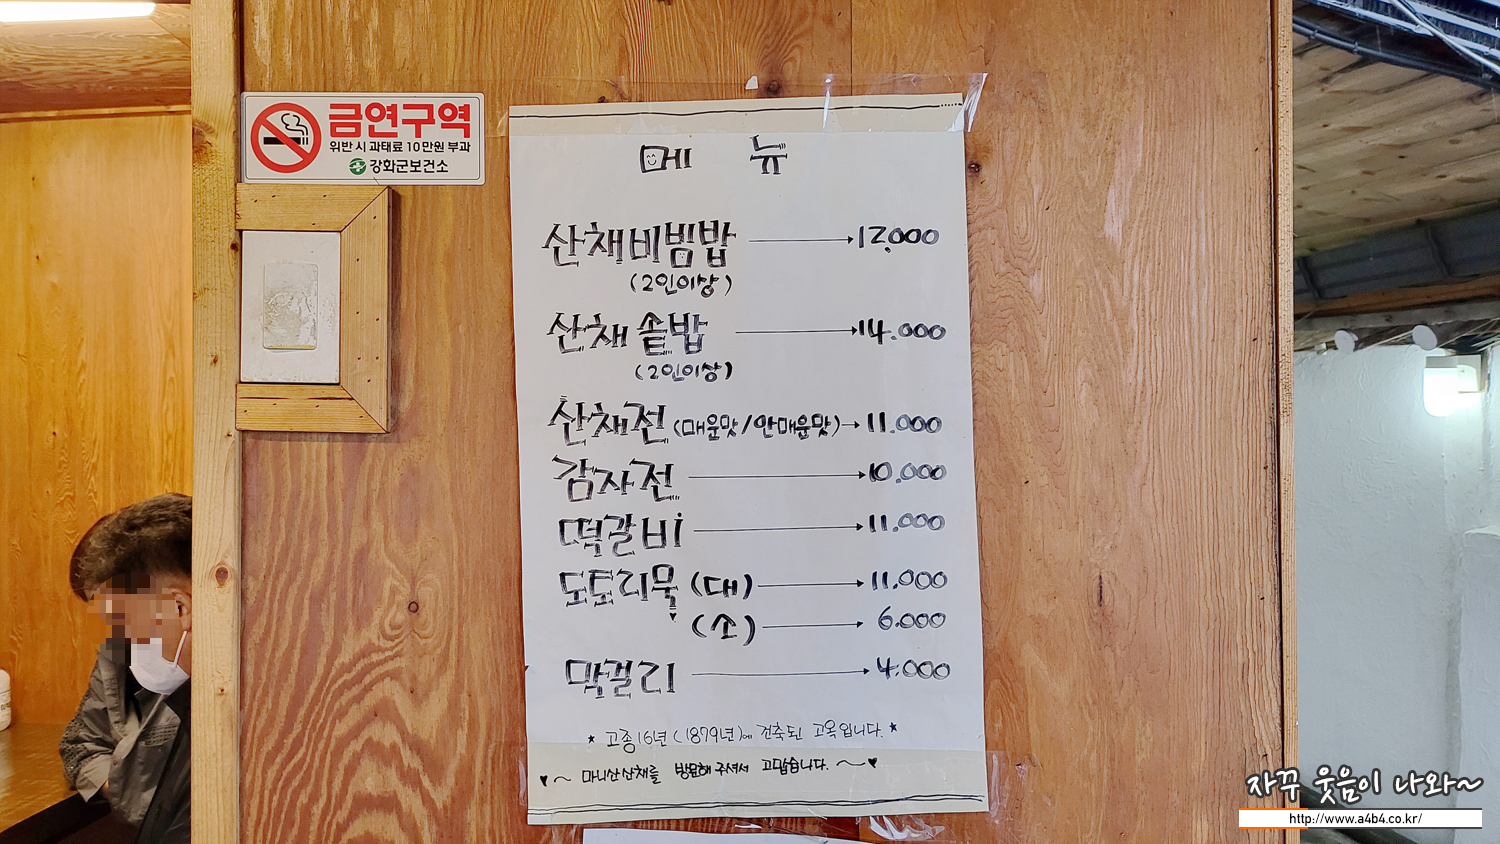 금연구역
위반 시 과태료 10만원 부과
강화군보건소
메 뉴
산채비빔밥 12,000
(2인이상)
산채솥밥 14.000
(2인이상)
산채전 (매운맛/안매운맛) 11.000
감자전 10.000
떡갈비 11.000
도토리묵 (대) 11.000
(소) 6.000
막걸리 4.000
고종16년(1879년)에 건축된 고옥입니다.
마니산산채를 방문해주셔서 고맙습니다.
자꾸 웃음이 나와~
http://www.a4b4.co.kr/